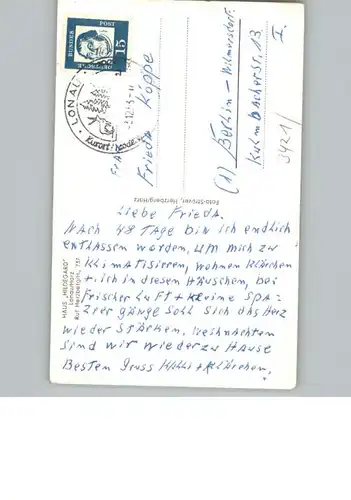 DEUTSCHE
BUNDES
POST
15
LONAU
Kurort
Frau
Frieda Koppe
(1) Berlin-Wilmersdorf.
Kulmbacherstr. 13
I.
3421/
Foto-Stöver, Herzberg/Harz
HAUS „HILDEGARD"
Lonau/Harz
Ruf Herzberg/H. 757
Liebe Frieda.
Nach 48 Tage bin ich endlich
entlassen worden. Um mich zu
klimatisieren, wohnen Klärchen
+ ich in diesen Häuschen, bei
frischer Luft + kleine Spa=
ziergänge soll sich das Herz
wieder stärken. Weihnachten
sind wir wieder zu Hause
Besten Gruss Willi + Klärchen.